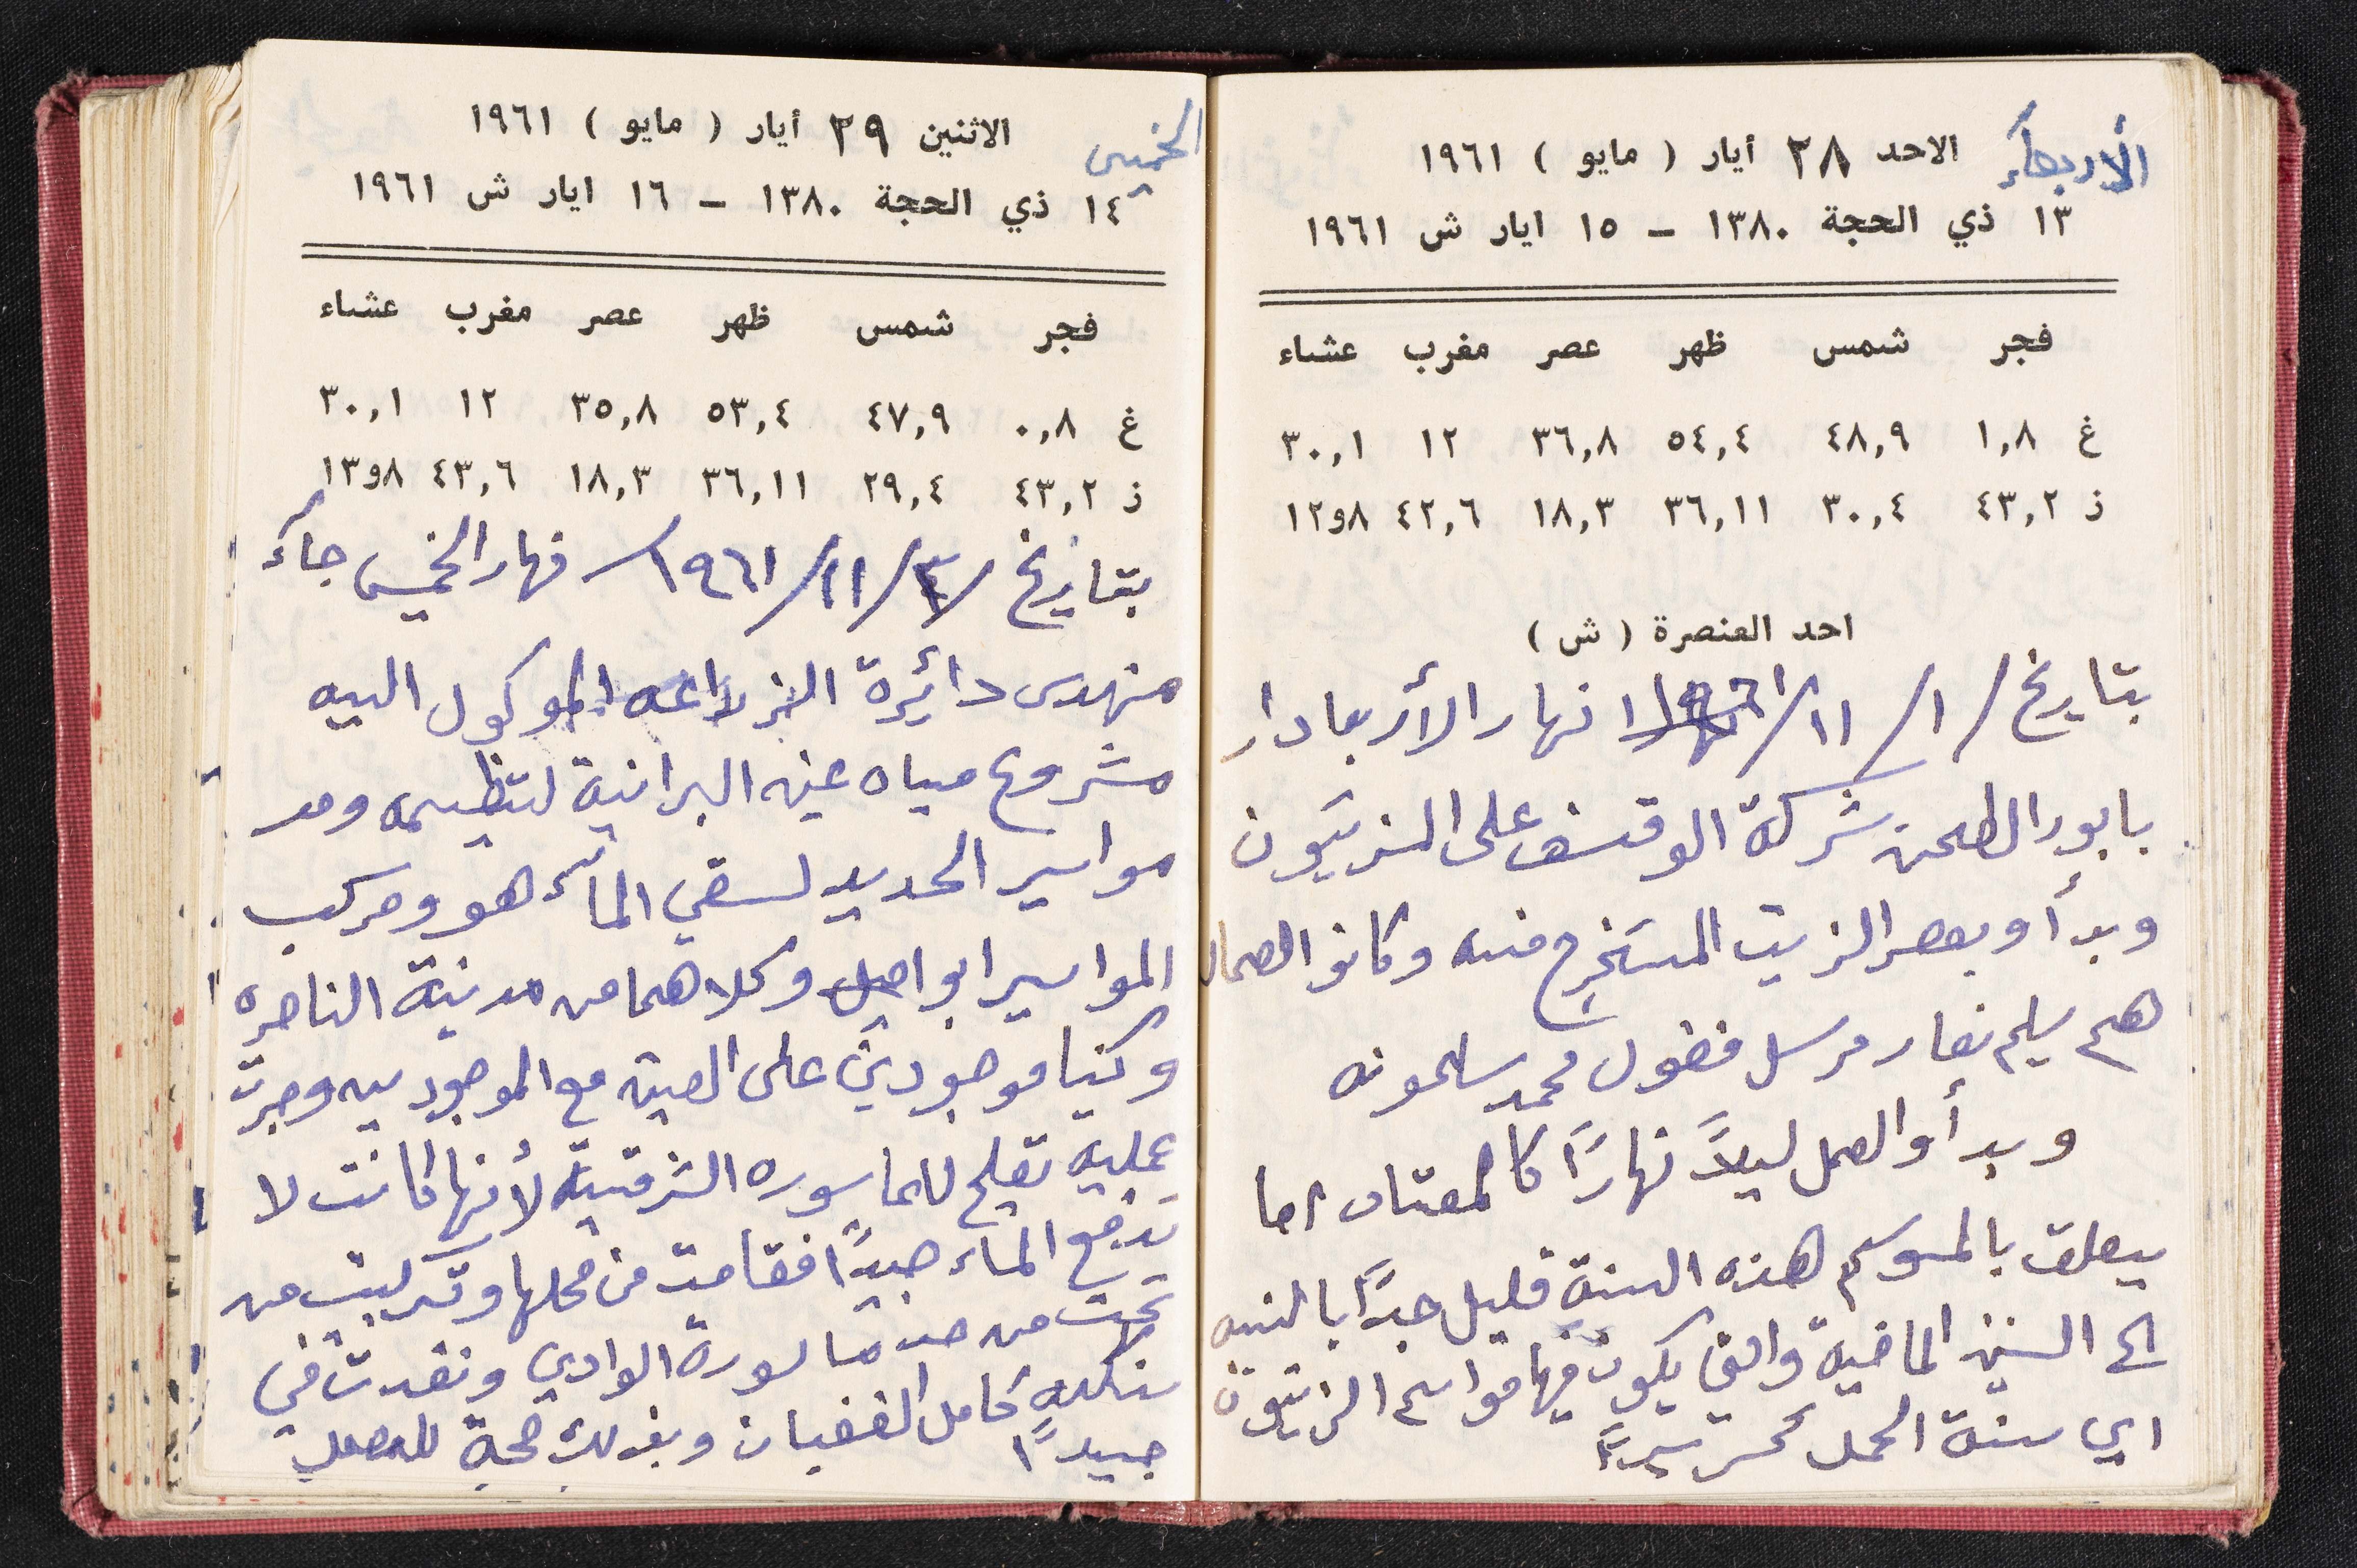 الأربعاء
الاحد ٢٨ أيار ( مايو ) ١٩٦١
١٣ ذي الحجة ١٣٨٠ – ١٥ ايار ش ١٩٦١
فجر شمس ظهر عصر مغرب عشاء
غ ١,٨ ٤٨,٩ ٥٤,٤ ٣٦,٨ ١٢ ٣٠,١
ذ ٤٣,٢ ٣٠,٤ ٣٦,١١ ١٨,٣ ٤٢,٦ ٨و١٢
احد العنصرة ( ش )
بتاريخ /١/١١/١٩٦١ نهار الأربعا دار
بابور الطحن شركة الوقف على الزيتون
وبدأو بعصر الزيت المستخرج منه وكانو العمال
هم سليم نصار مرسل فضول محمد سلمونه
وبدأو العمل ليلاً نهاراً كالمعتاد اما
يتعلق بالموسم هذه السنة قليل جداً بالنسبه
الى السنين الماضية والتي يكون فيها مواسم الزيتون
اي سنة الحمل
الخميس
الاثنين ٢٩ أيار ( مايو ) ١٩٦١
١٤ ذي الحجة ١٣٨٠ – ١٦ ايار ش ١٩٦١
فجر شمس ظهر عصر مغرب عشاء
غ ٠,٨ ٤٧,٩ ٥٣,٤ ٣٥,٨ ١٢ ٣٠,١
ذ ٤٣,٢ ٢٩,٤ ٣٦,١١ ١٨,٣ ٤٣,٦ ٨و١٣
بتاريخ /١١/١٩٦١/ نهار الخميس جاء
مهندس دائرة الزراعه الموكول اليه
مشروع مياه عين البرانية لتنظيمه ومد
مواسير الحديد لسقي الماء هو ومركب
المواسير ابو وكلاهما من مدينة الناصره
وكنا موجودين على العين مع الموجودين وجرت
عمليه تقليع للماسوره الشرقية لأنها كانت لا
تدفع الماء جيداً فقامت من محلها وتركبت من
تحت من حد ماسورة الوادي ونفدت في
كامل الغضبان وبذلك
جيداً